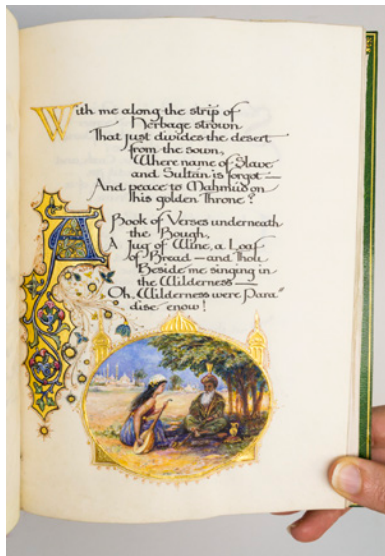 With me along the strip of
Herbage strown
That just divides the desert
from the sown,
Where name of Slave
and Sultan is forgot —
And peace to Mahmud on
his golden Throne?
A Book of Verses underneath
the Bough,
A Jug of Wine, a Loaf
of Bread — and Thou
Beside me singing in
the Wilderness —
Oh, Wilderness were Para"
dise enow!